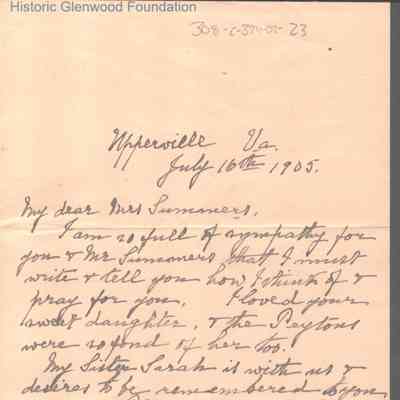 Historic Glenwood Foundation
Upperville Va.
July 16th 1905.
My dear Mrs Summers,
I am so full of sympathy for
you & Mr Summers that I must
write & tell you how I think of &
pray for you. I loved your
sweet daughter, & the Peytons
were so fond of her too.
My Sister Sarah is with us &
desires to be remembered to you